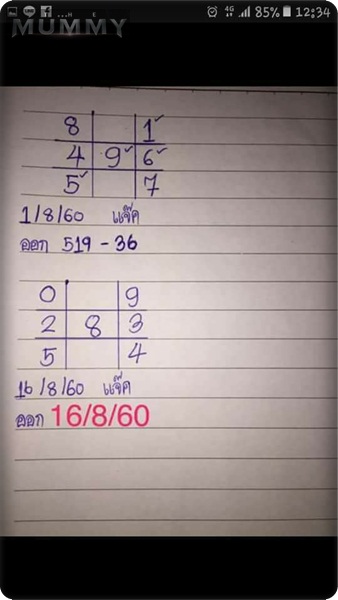 ...H E 4G 85% 12:34
MUMMY
8 1
4 9 6
5 7
1/8/60 แจ๊ค
ออก 519 - 36
0 9
2 8 3
5 4
16/8/60 แจ๊ค
ออก 16/8/60